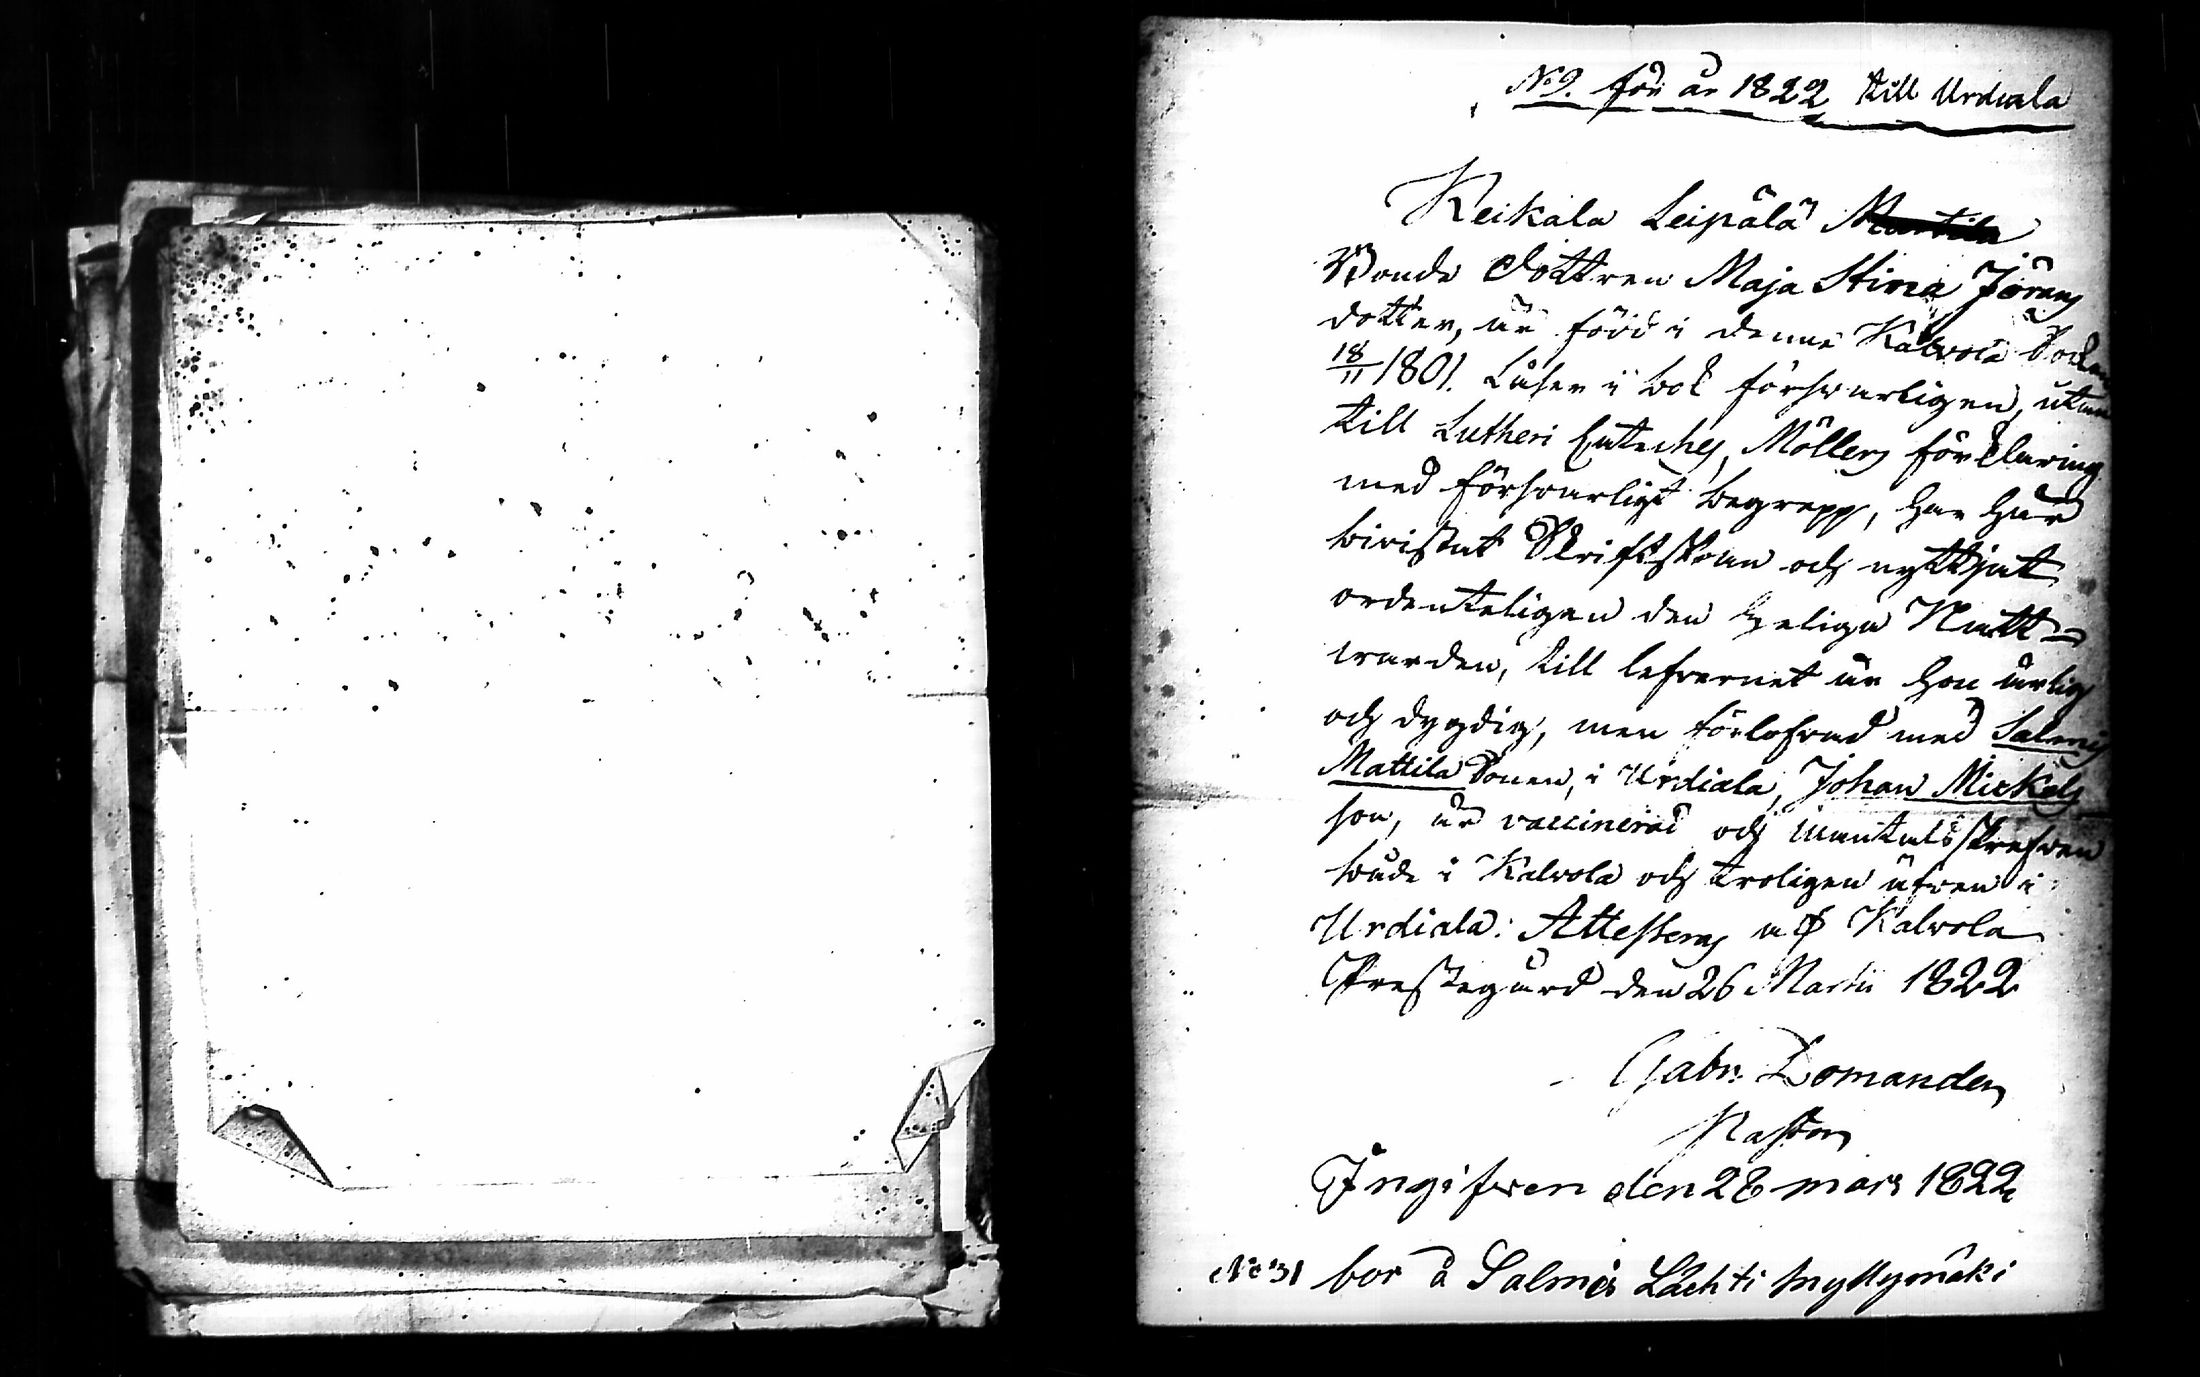 No 9. för år 1822 till Urdiala
Keikala Leipälä Marttila
Bonde dottren Maja Stina Jörans
dotter, är född i denne Kalvola Socken
18/11 1801. Läser i bok försvarligen, utan
till Lutheri Cateches, Möllers förklaring
med försvarligt begrepp, har här
bivistat Skriftskolan och nyttjat
ordenteligen den heliga Natt-
varden, till lefvernet är hon ärlig
och dygdig, men förlofvad med Salmis
Mattila Sonen, i Urdiala, Johan Mickels
son, är vaccinerad och mantalsskrefven
både i Kalvola och troligen äfven i
Urdiala: Attesteras af Kalvola
Prestegård den 26 Martii 1822
Gabr. Lomander
Pastor
Ingifven den 28 mars 1822
No 31 bor å Salmis Lachti Myllymäki